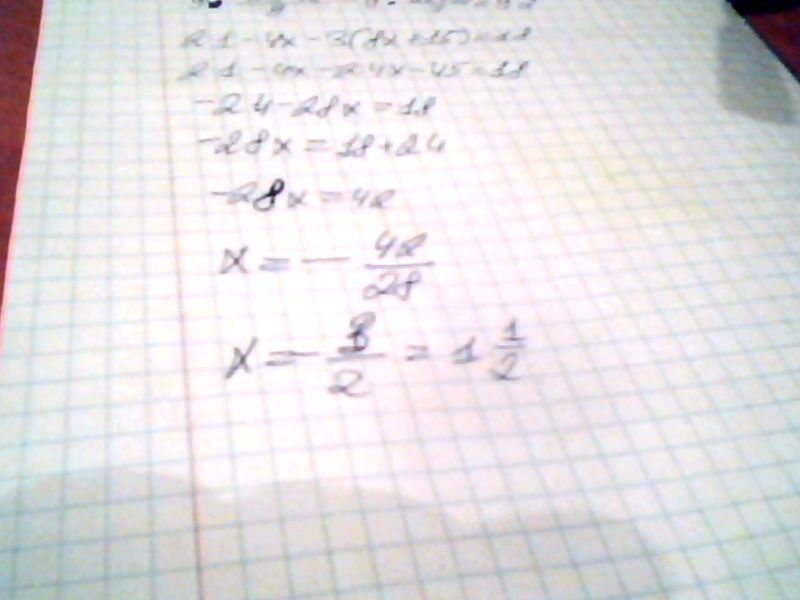 21-4x-3(8x+15)=18
21-4x-24x-45=18
-24-28x=18
-28x=18+24
-28x=42
x=-42/28
x=-3/2=1 1/2